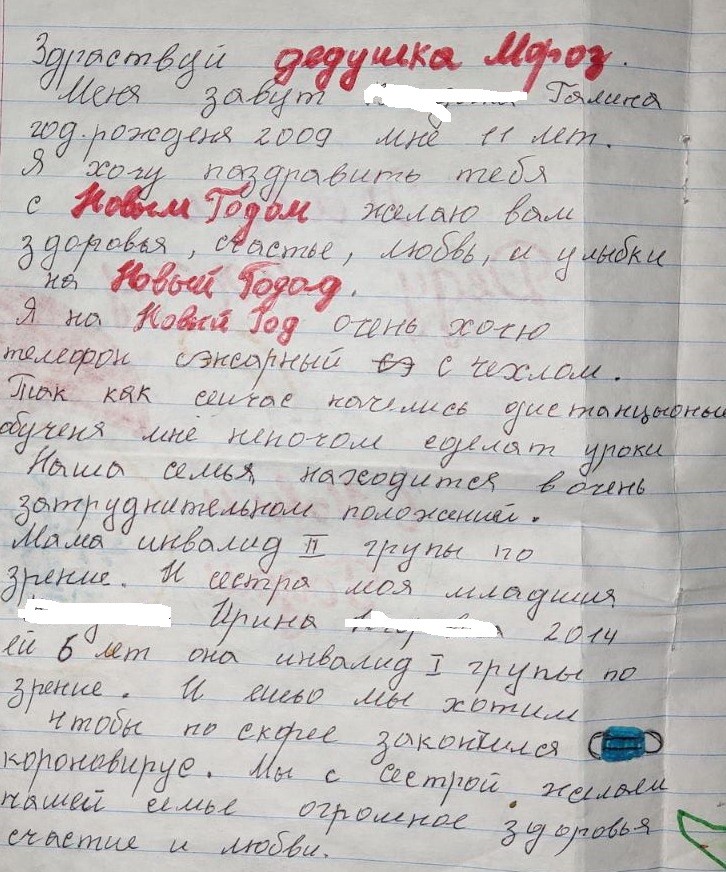 Здраствуй дедушка Мороз.
Меня завут Галина
год.рожденя 2009 мне 11 лет.
Я хочу паздравить тебя
с Новым Годом желаю вам
здоровья, счастье, любвь, и улыбки
на Новый Годод.
Я на Новый Год очень хочю
телефон сэнсарный с чехлом.
Так как сейчас начелись дистанцыоные
обученя мне непочом сделат уроки
Наша семья находится в очень
затруднительном положений.
Мама инвалид II групы по
зрение. И сестра моя младшия
Ирина 2014
ей 6 лет она инвалид I групы по
зрение. И ешьо мы хотим
чтобы по скорее закончился
короновирус. Мы с сестрой желаем
нашей семье огромное здоровья
счастие и любви.